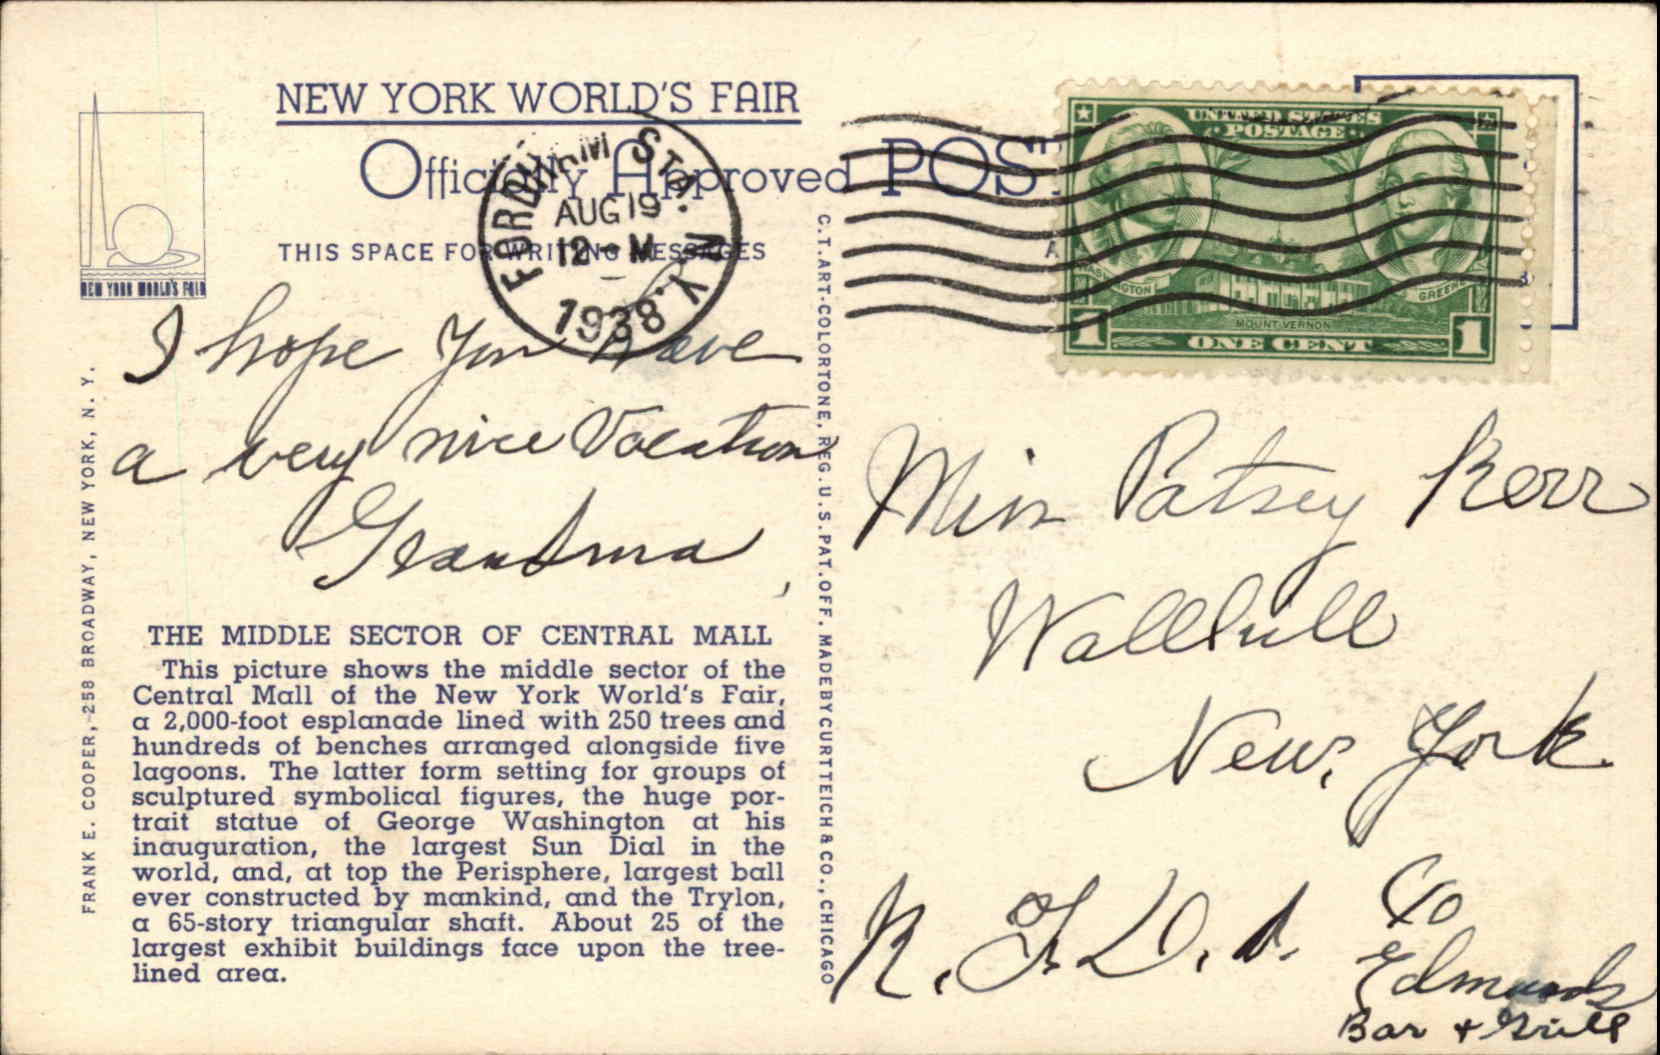 NEW YORK WORLD'S FAIR
Officially Approved POST
THIS SPACE FOR WRITING MESSAGES
NEW YORK WORLD'S FAIR
FORDHAM STA. N.Y.
AUG 19
12 - M
1938
UNITED STATES
POSTAGE
WASHINGTON
GREENE
MOUNT VERNON
1 ONE CENT 1
I hope you have
a very nice Vacation
Grandma
THE MIDDLE SECTOR OF CENTRAL MALL
This picture shows the middle sector of the
Central Mall of the New York World's Fair,
a 2,000-foot esplanade lined with 250 trees and
hundreds of benches arranged alongside five
lagoons. The latter form setting for groups of
sculptured symbolical figures, the huge por-
trait statue of George Washington at his
inauguration, the largest Sun Dial in the
world, and, at top the Perisphere, largest ball
ever constructed by mankind, and the Trylon,
a 65-story triangular shaft. About 25 of the
largest exhibit buildings face upon the tree-
lined area.
FRANK E. COOPER, -258 BROADWAY, NEW YORK, N. Y.
C.T. ART-COLORTONE, REG. U.S. PAT. OFF. MADE BY CURT TEICH & CO., CHICAGO
Miss Patsey Kerr
Wallkill
New York
R. F. D. 1.
c/o
Edmunds
Bar + Grill